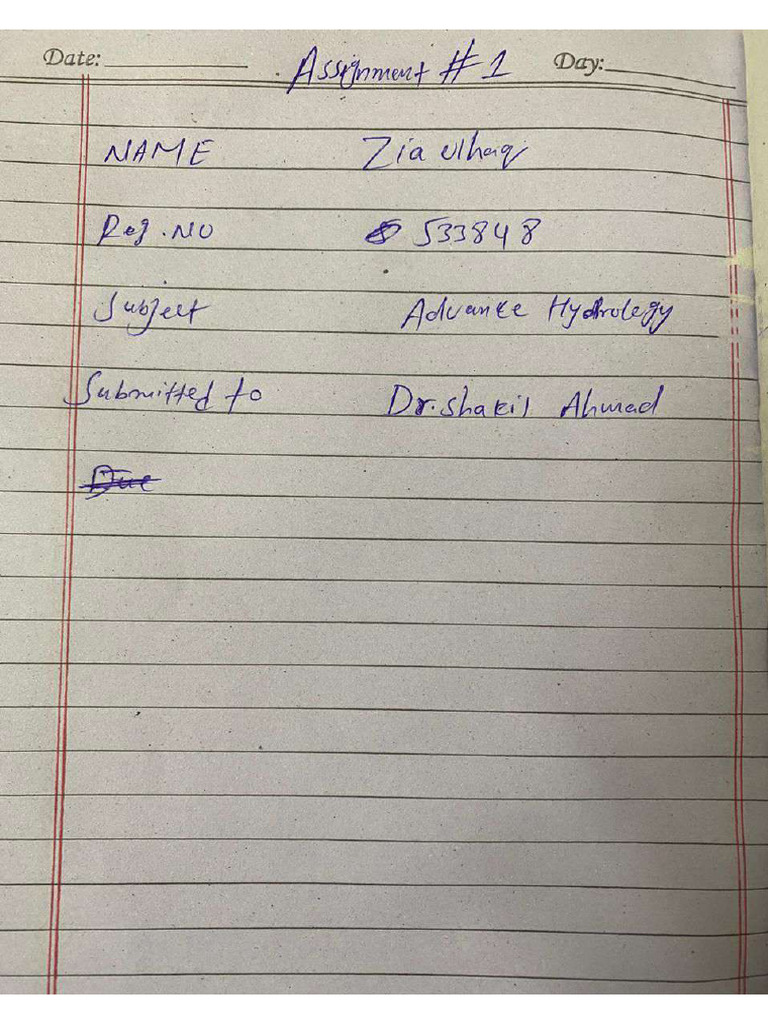 Date: Assignment # 1 Day:
NAME Zia Ulhaq
Reg. NO 533848
Subject Advance Hydrology
Submitted to Dr. Shakil Ahmad
Due